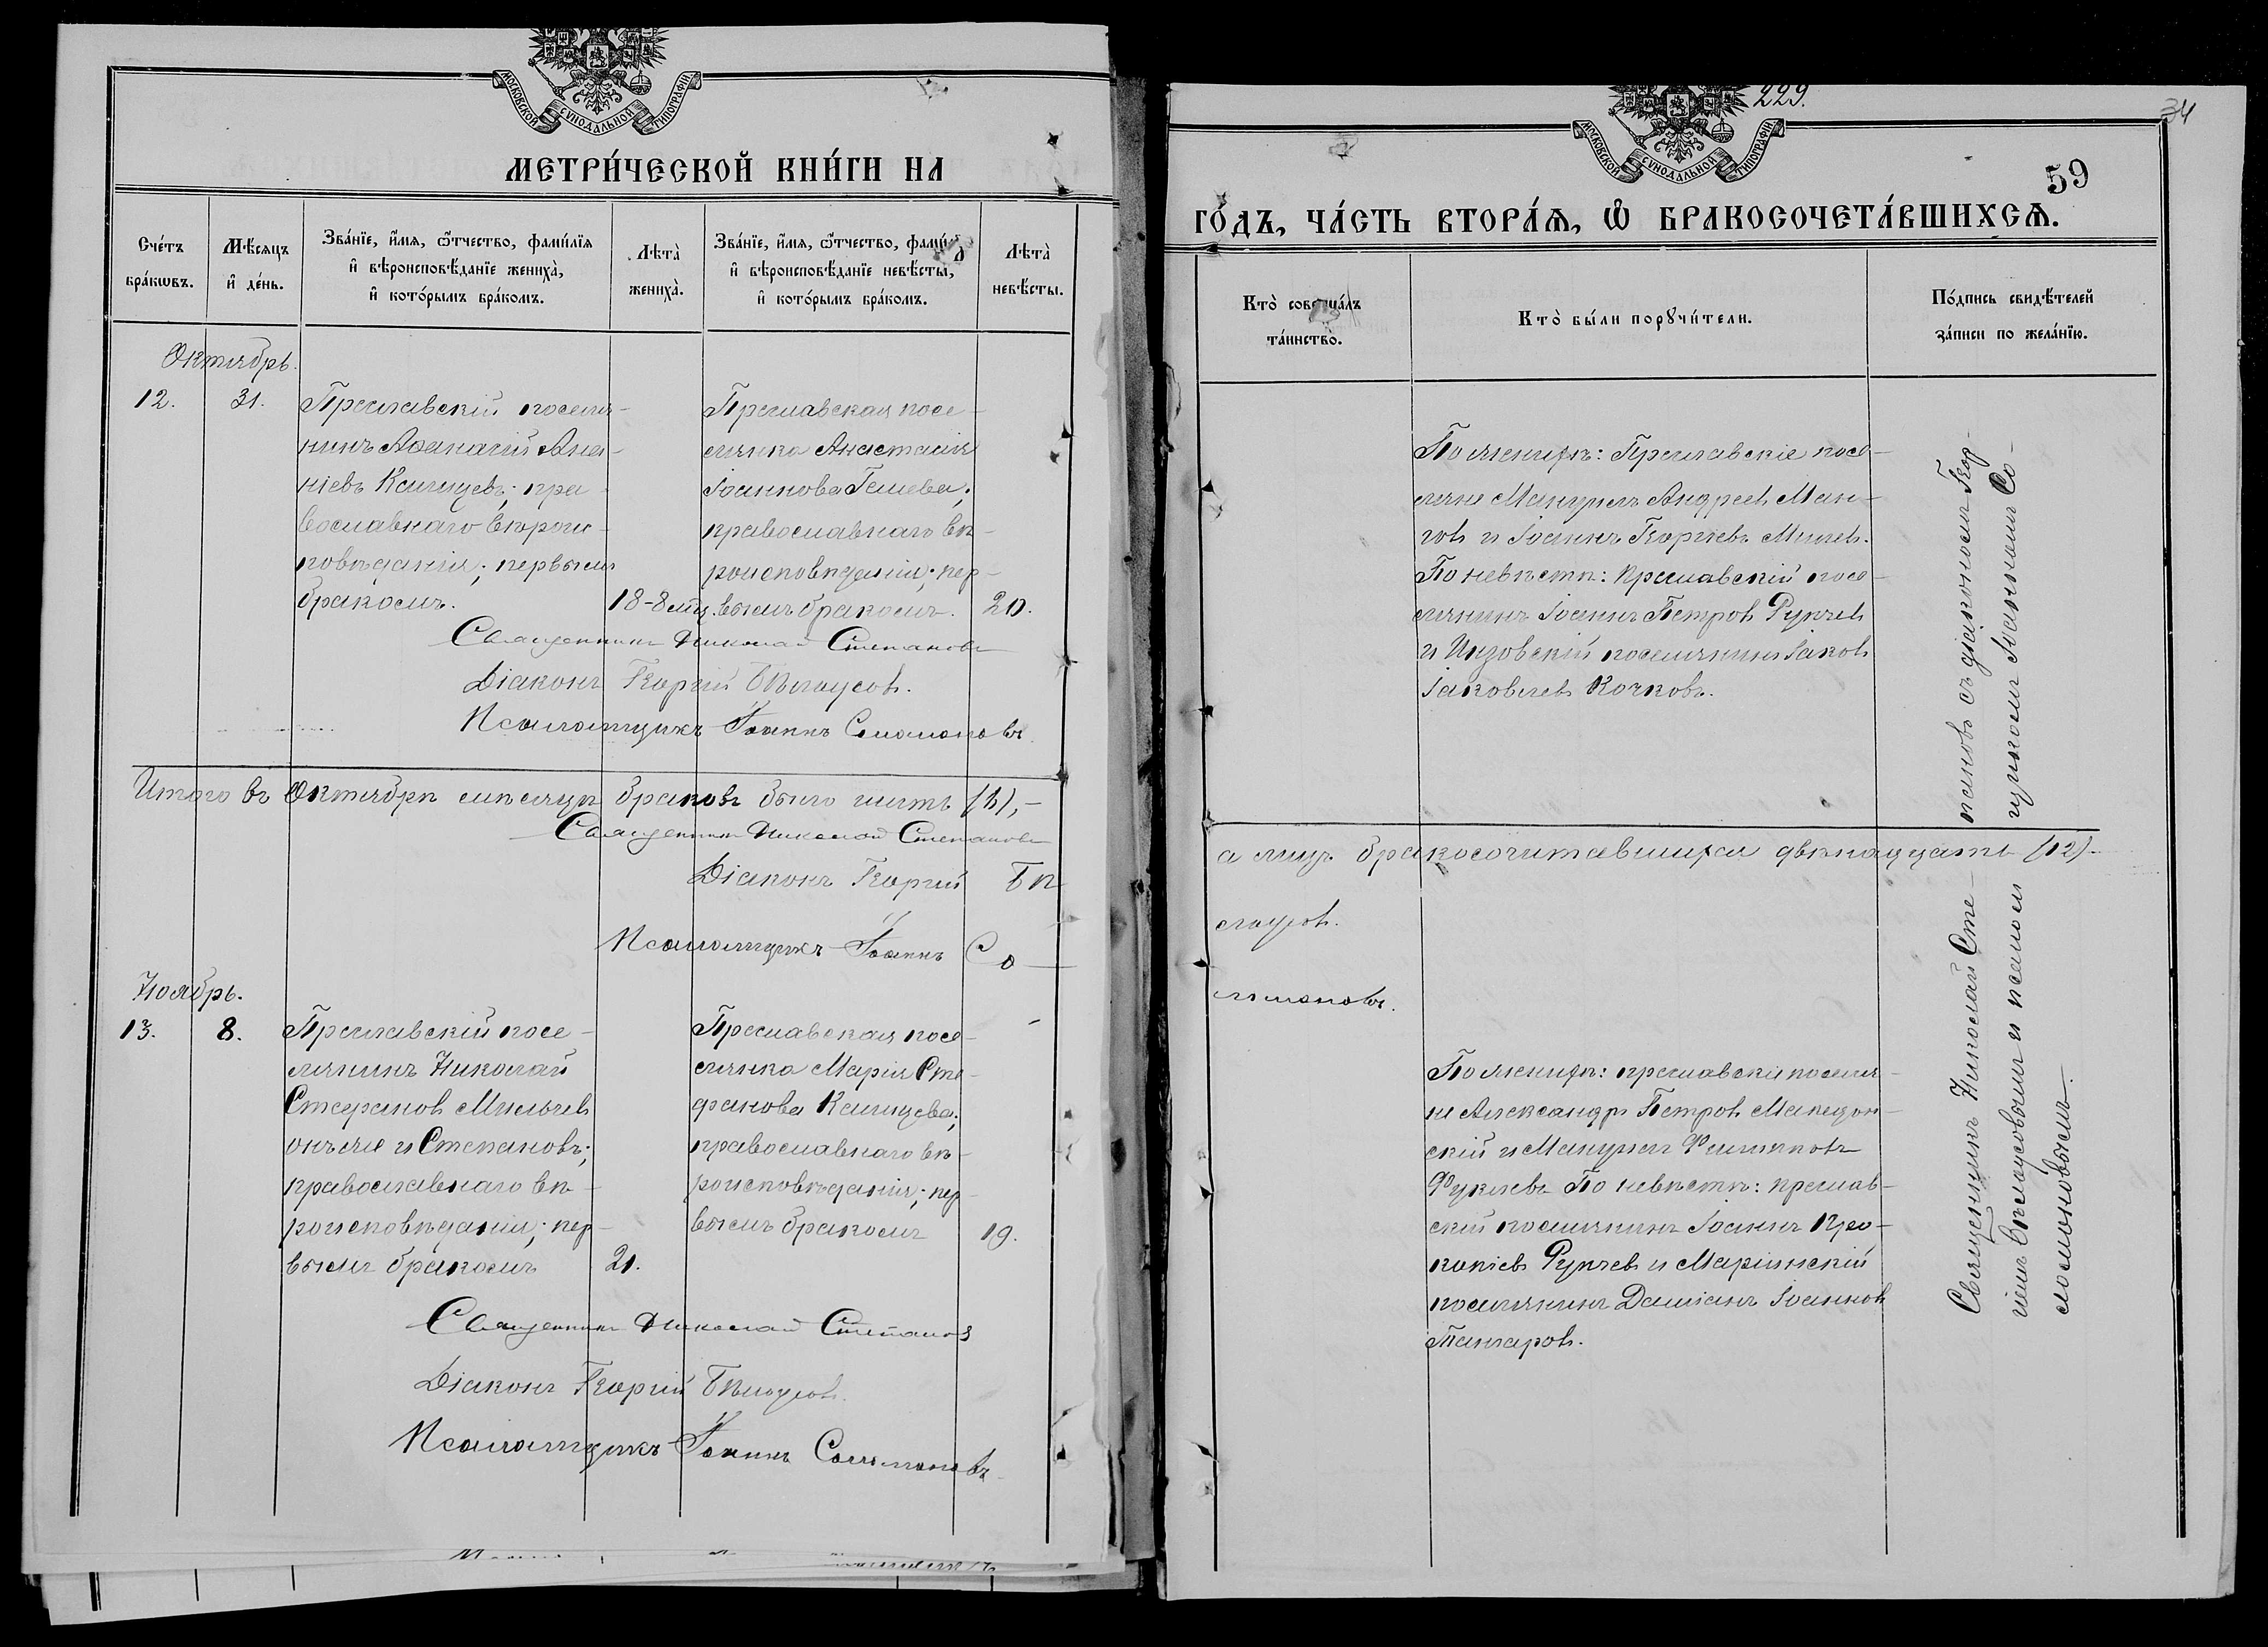 МОСКОВСКОЙ СѴНОДАЛЬНОЙ ТИПОГРАФІИ
МЕТРИ́ЧЕСКОЙ КНИ́ГИ НА
Сче́тъ бра́кѡвъ.
Мѣ́сяцъ и҆ де́нь.
Зва́нїе, и҆́мѧ, ѻ҆́тчество, фами́лїѧ
и҆ вѣроисповѣ́данїе жениха̀,
и҆ кото́рымъ бра́комъ.
Лѣта̀ жениха̀.
Зва́нїе, и҆́мѧ, ѻ҆́тчество, фами́лїѧ
и҆ вѣроисповѣ́данїе невѣ́сты,
и҆ кото́рымъ бра́комъ.
Лѣта̀ невѣ́сты.
Октябрь.
12.
31.
Преславскій поселя-
нинъ Аѳанасій Ана-
ніевъ Калицевъ; пра-
вославнаго вѣроис-
повѣданія; первымъ
бракомъ.
18-8мѣц.
Преславская посе-
лянка Анастасія
Іоаннова Гешева;
православнаго вѣ-
роисповѣданія; пер-
вымъ бракомъ.
20.
Священникъ Николай Степановъ
Діаконъ Георгій Бѣлоусовъ.
Псаломщикъ Іоаннъ Соломоновъ.
Итого въ Октябрѣ мѣсяцѣ браковъ было шесть (6),-
Священникъ Николай Степановъ
Діаконъ Георгій Бѣ-
Псаломщикъ Іоаннъ Со-
Ноябрь.
13.
8.
Преславскій посе-
лянинъ Николай
Стефановъ Мильчев
онъ же и Степановъ;
православнаго вѣ-
роисповѣданія; пер-
вымъ бракомъ
21.
Преславская посе-
лянка Марія Сте-
фанова Калицева;
православнаго вѣ-
роисповѣданія; пер-
вымъ бракомъ
19.
Священникъ Николай Степановъ
Діаконъ Георгій Бѣлоусовъ.
Псаломщикъ Іоаннъ Соломоновъ
229.
34
59
МОСКОВСКОЙ СѴНОДАЛЬНОЙ ТИПОГРАФІИ
ГО́ДЪ, ЧА́СТЬ ВТОРА́Ѧ, Ѡ҆ БРАКОСОЧЕТА́ВШИХСѦ.
Кто̀ соверша́лъ та́инство.
Кто̀ бы́ли порꙋчи́тели.
По́дпись свидѣ́телей за́писи по жела́нїю.
По женихѣ: Преславскіе посе-
ляне Мануилъ Андреевъ Ман-
говъ и Іоаннъ Георгіевъ Милев.
По невѣстѣ: Преславскій посе-
лянинъ Іоаннъ Петровъ Рупчев
и Инзовскій поселянинъ Іаков
Іаковлев Кочковъ.
а лицъ бракосочетавшихся двѣнадцать (12).-
лоусовъ.
ломоновъ.
По женихѣ: преславскіе поселя-
не Александръ Петровъ Македон-
скій и Мануилъ
По невѣстѣ: преслав-
скій поселянинъ Іоаннъ Про-
копіевъ Рупчевъ и Маріинскій
поселянинъ Даміанъ Іоаннов
Танчаровъ.
Священникъ Николай Сте-
пановъ съ діакономъ Геор-
гіемъ Бѣлоусовымъ и псалом-
щикомъ Іоанномъ Со-
ломоновымъ.